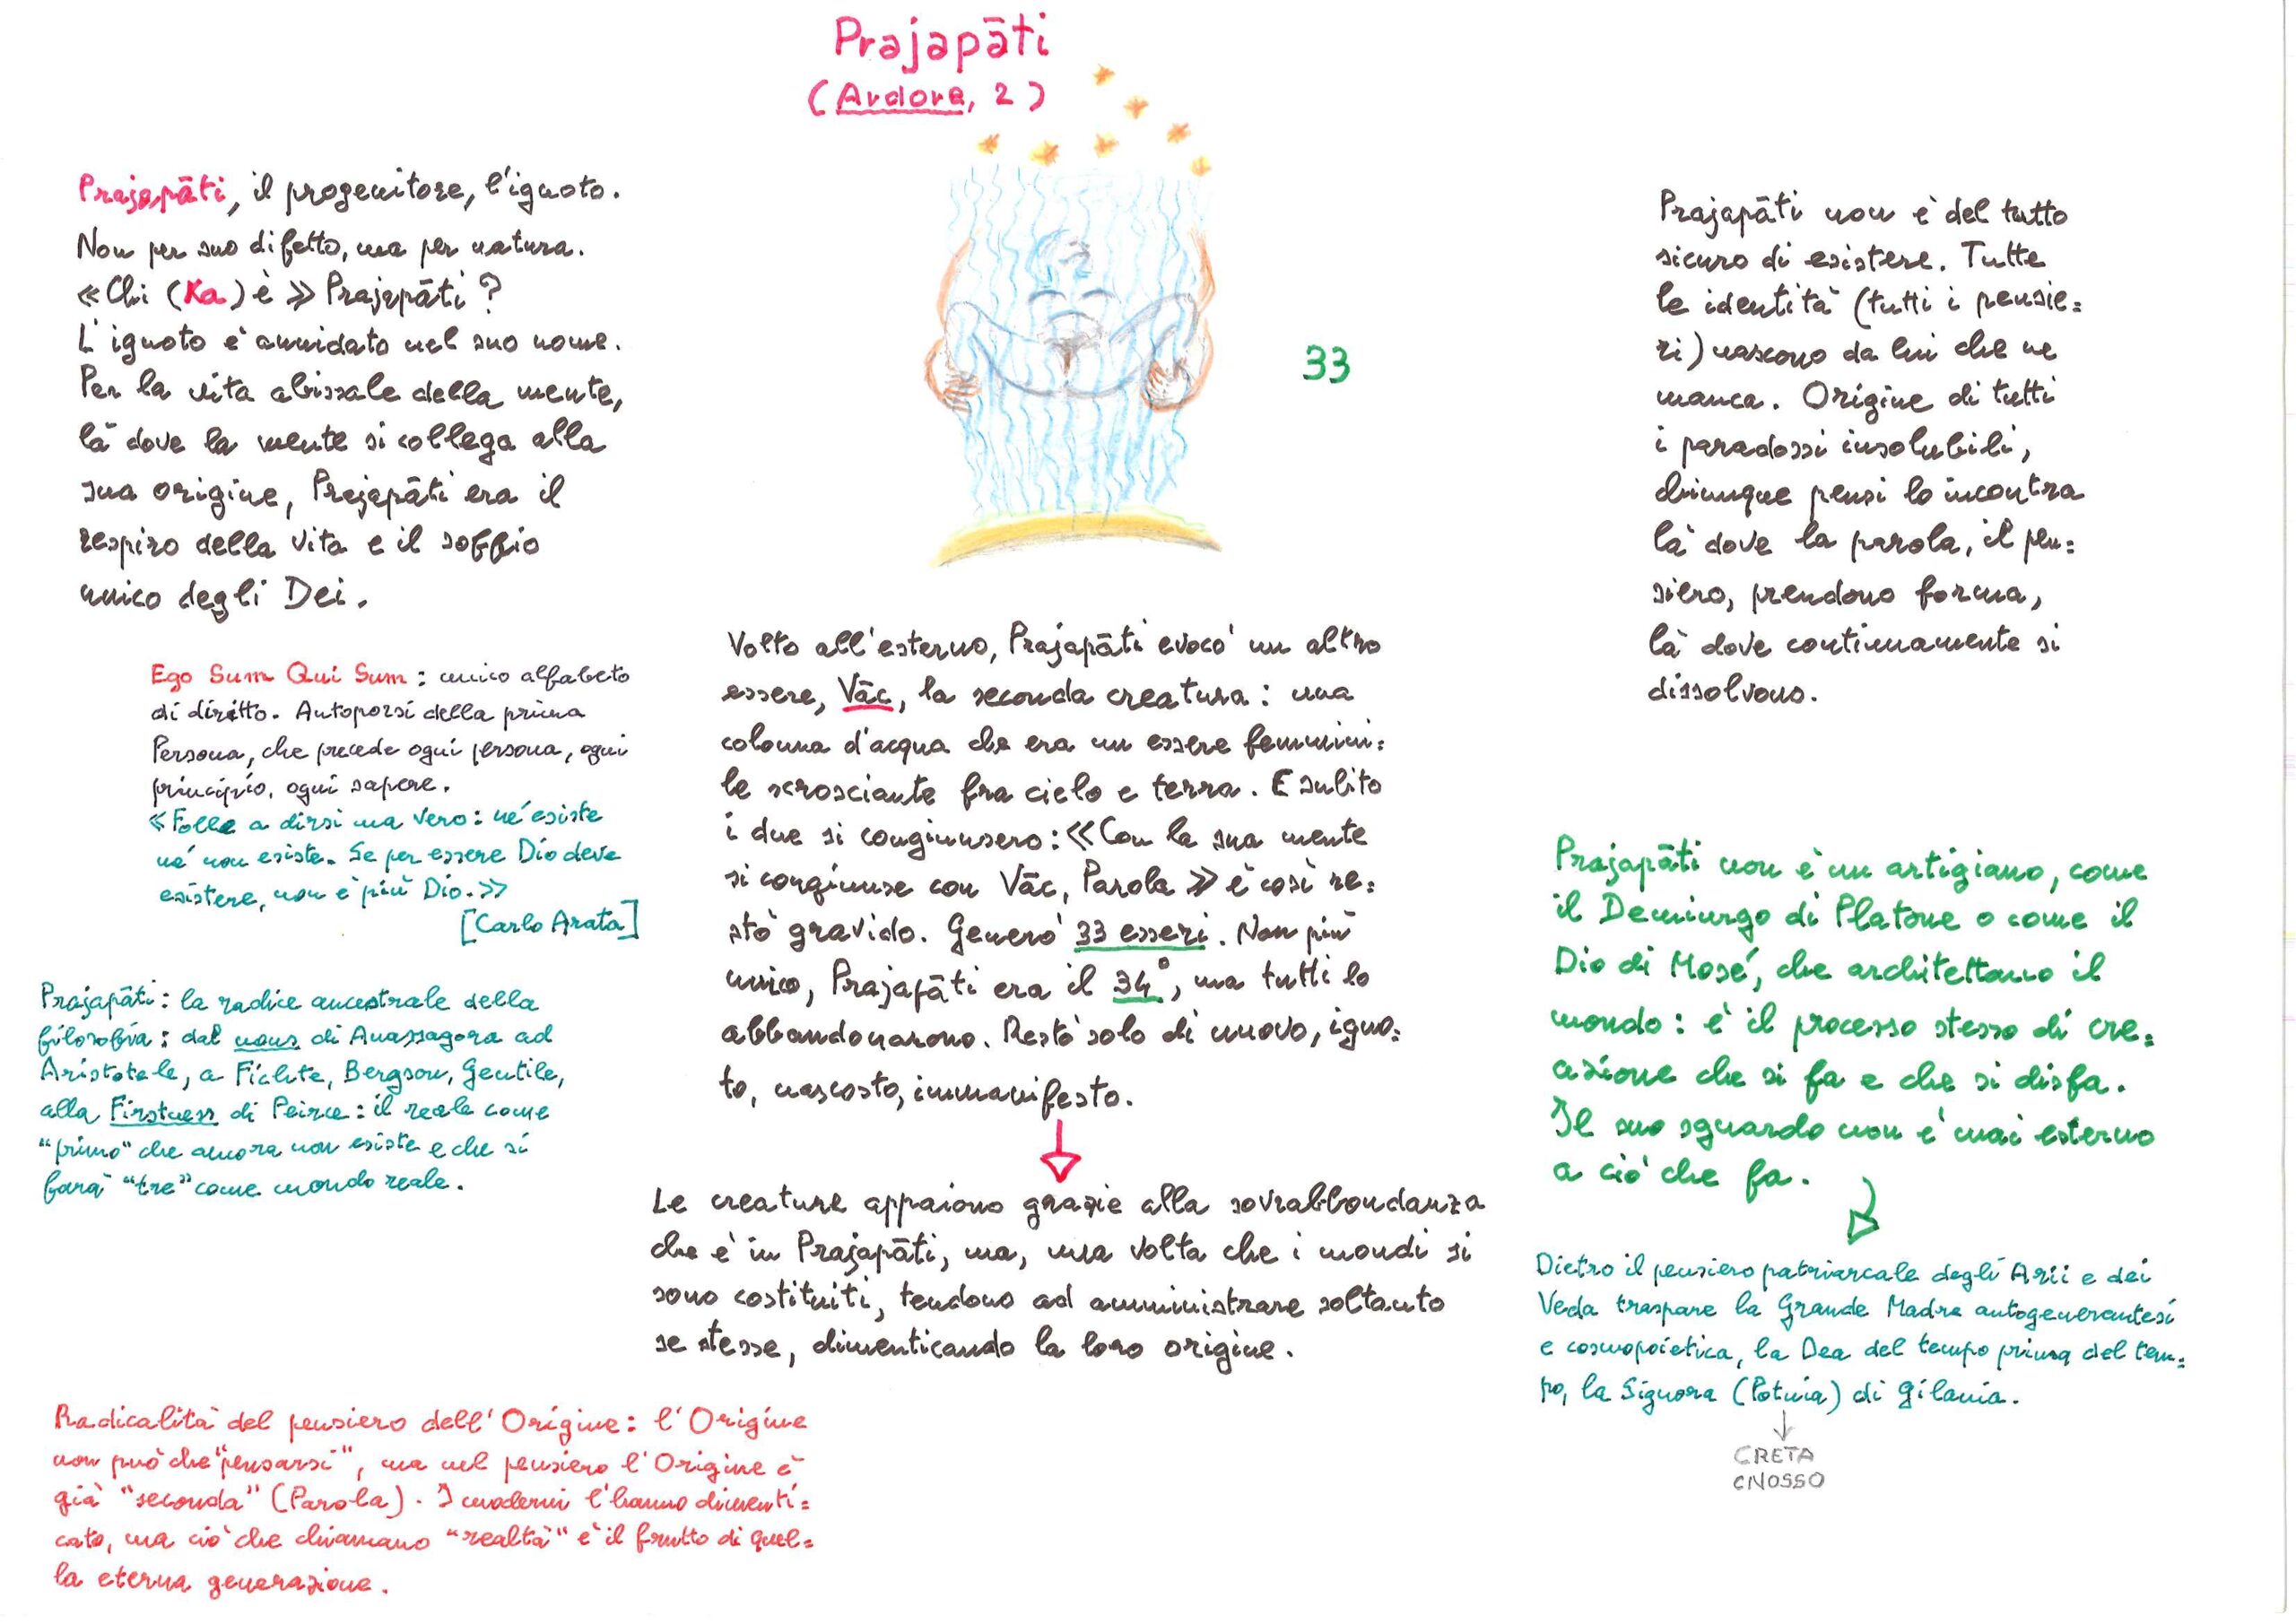 Prajapāti
(Ardore, 2)
Prajapāti, il progenitore, l'ignoto.
Non per suo difetto, ma per natura.
«Chi (Ka) è» Prajapāti?
L'ignoto è annidato nel suo nome.
Per la vita abissale della mente,
là dove la mente si collega alla
sua origine, Prajapāti era il
respiro della vita e il soffio
unico degli Dei.
Ego Sum Qui Sum: unico alfabeto
di diritto. Autoporsi della prima
Persona, che precede ogni persona, ogni
principio, ogni sapere.
«Folle a dirsi ma vero: né esiste
né non esiste. Se per essere Dio deve
esistere, non è più Dio.»
[Carlo Arata]
Prajapāti: la radice ancestrale della
filosofia: dal nous di Anassagora ad
Aristotele, a Fichte, Bergson, Gentile,
alla Firstness di Peirce: il reale come
"primo" che ancora non esiste e che si
farà "tre" come mondo reale.
33
Volto all'esterno, Prajapāti evocò un altro
essere, Vāc, la seconda creatura: una
colonna d'acqua che era un essere femmini=
le scrosciante fra cielo e terra. E subito
i due si congiunsero: «Con la sua mente
si congiunse con Vāc, Parola» e così re=
stò gravido. Generò 33 esseri. Non più
unico, Prajapāti era il 34°, ma tutti lo
abbandonarono. Restò solo di nuovo, igno=
to, nascosto, immanifesto.
Le creature appaiono grazie alla sovrabbondanza
che è in Prajapāti, ma, una volta che i mondi si
sono costituiti, tendono ad amministrare soltanto
se stesse, dimenticando la loro origine.
Radicalità del pensiero dell'Origine: l'Origine
non può che "pensarsi", ma nel pensiero l'Origine è
già "seconda" (Parola). I moderni l'hanno dimenti=
cato, ma ciò che chiamano "realtà" è il frutto di quel=
la eterna generazione.
Prajapāti non è del tutto
sicuro di esistere. Tutte
le identità (tutti i pensie=
ri) nascono da lui che ne
manca. Origine di tutti
i paradossi insolubili,
chiunque pensi lo incontra
là dove la parola, il pen=
siero, prendono forma,
là dove continuamente si
dissolvono.
Prajapāti non è un artigiano, come
il Demiurgo di Platone o come il
Dio di Mosé, che architettano il
mondo: è il processo stesso di cre=
azione che si fa e che si disfa.
Il suo sguardo non è mai esterno
a ciò che fa.
Dietro il pensiero patriarcale degli Arii e dei
Veda traspare la Grande Madre autogenerantesi
e cosmopoietica, la Dea del tempo prima del tem=
po, la Signora (Potnia) di Gilania.
CRETA
CNOSSO